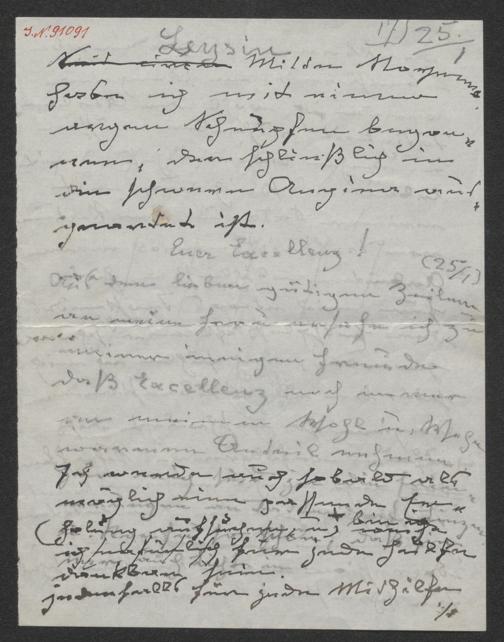 J.N. 91091
Leysin 17) 25.
1
Milden Morgen
habe ich mit einem
argen Schnupfen begon-
nen, der schließlich in
eine schwere Angina aus-
geartet ist.
Euer Excellenz! (25/1)
Aus den lieben gütigen Zeilen
an meine Frau ersehe ich zu
meiner innigen Freude
daß Excellenz noch immer
an meinem Wohl u. Wehe
warmen Anteil nehmen
Ich werde mich sobald als
möglich eine passende
bin
ich natürlich für jede Hilfe
dankbar sein.
jedenfalls für jede Mithilfe